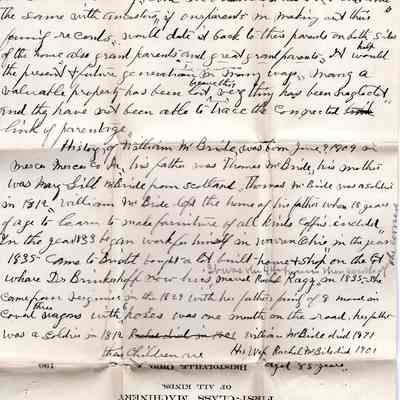 The same with ancestors, if our parents in making out their
family records, would date it back to their parents on both sides
of the home also grand parents and great grand parents, It would help
the present & future generation in many ways, many a
valuable property has been lost because this very thing has been neglected
and they have not been able to trace the connected
link of parentage
History of William McBride, was born June 9 1809 in
Mercer Co Pa, his father was Thomas McBride, his mother
was May Sill McBride from Scotland, Thomas McBride was a soldier
in 1812 William McBride left the home of his father when 18 years
of age to learn to make furniture of all kinds Coffins included
In the year 1833 began work for himself in Warren Ohio in the year
1835 Came to bought a lot built home & shop on the lot
where Dr Brinkerhoff now lives, married Rachel Ragg in 1835 She
Came from in the 1829 with her father's family of 8 moved in
three wagons with horses was one month on the road. her father
was a soldier in 1812 William McBride died 1871
their Children are His Wife Rachel McBride died 1901
aged 83 years.
BRISTOLVILLE, OHIO, 190
FIRST-CLASS MACHINERY
OF ALL KINDS.